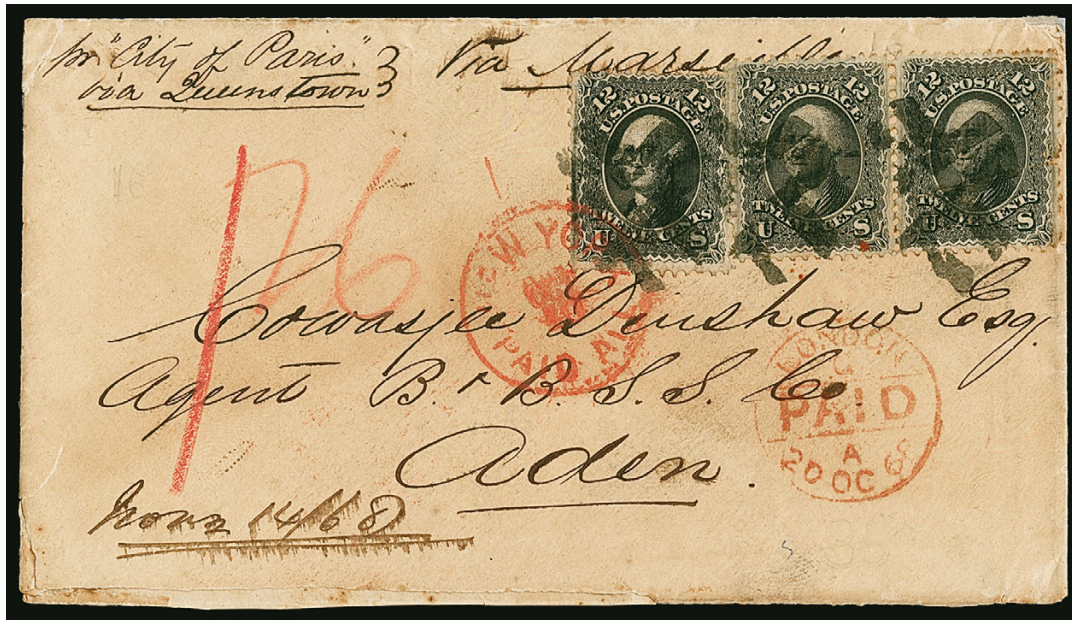 pr "City of Paris"
via Queenstown
Via Marseilles
12 12
U.S. POSTAGE
TWELVE CENTS
U S
12 12
U.S. POSTAGE
TWELVE CENTS
U S
12 12
U.S. POSTAGE
TWELVE CENTS
U S
26
NEW YORK
PAID ALL
Cowasjee Dinshaw Esq.
Agent B & B. S. S. Co.
Aden.
LONDON
PAID
A
20 OC 68
Novr 14/68